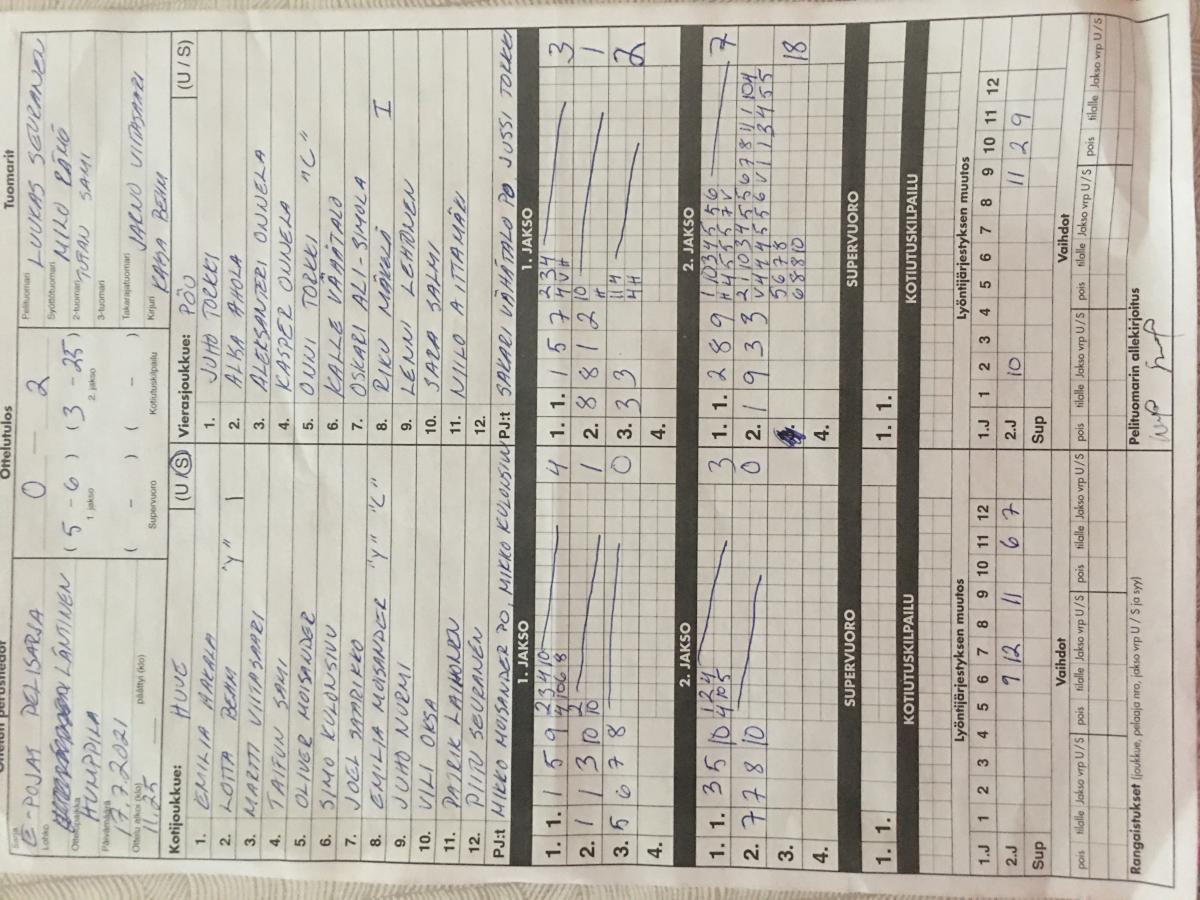 Ottelun perustiedot
Sarja E-POJAT PELISARJA
Lohko LÄNTINEN
Ottelupaikka HUMPPILA
Päivämäärä 17.7.2021
Ottelu alkoi (klo) 11.25 päättyi (klo)
Ottelutulos
0 2
( 5 - 6 ) ( 3 - 25 )
1. jakso 2. jakso
( - ) ( - )
Supervuoro Kotiutuskilpailu
Tuomarit
Pelituomari LUUKAS SEURANEN
Syöttötuomari MILO RÄMÖ
2-tuomari SAMI
3-tuomari
Takarajatuomari JARNO VIITASAARI
Kirjuri KAISA PERIM
Kotijoukkue: HUVE (U / S)
1. EMILIA HAKALA
2. LOTTA "Y" 1
3. MARTTI VIITASAARI
4. SAMI
5. OLIVER MOISANDER
6. SIMO KULONSIVU
7. JOEL SAARIKKO
8. EMILIA MOISANDER "Y" "C"
9. JUHO NURMI
10. VILI OKSA
11. PATRIK LAIHONEN
12. PIITU SEURANEN
PJ:t MIKKO MOISANDER PO, MIKKO KULONSIVU
Vierasjoukkue: PöU (U / S)
1. JUHO TORKKI
2. ALSA AHOLA
3. ALEKSANTERI ONNELA
4. KASPER ONNELA
5. ONNI TORKKI "C"
6. KALLE VÄHÄTALO
7. OSKARI ALI-SIMOLA
8. RIKU MÄKELÄ I
9. LENNI LEHTONEN
10. SARA SALMI
11. NIILO AITTAMÄKI
12.
PJ:t SAKARI VÄHÄTALO PO, JUSSI TORKKI
1. JAKSO
1. 1. 1 5 9 2 3 4 10 4
4 10 6 8
2. 1 3 10 2 1
10
3. 5 6 7 8 0
4.
2. JAKSO
1. 1. 3 5 10 1 2 4 3
4 10 5
2. 7 7 8 10 0
3.
4.
SUPERVUORO
1. 1.
KOTIUTUSKILPAILU
1. JAKSO
1. 1. 1 5 7 2 3 4 3
4 V H
2. 8 8 1 2 10 1
H
3. 3 3 11 4 2
4 H
4.
2. JAKSO
1. 1. 2 8 9 1 10 3 4 5 5 6 7
H 4 5 5 5 7 V
2. 1 9 3 3 2 1 10 3 4 5 5 6 7 8 11 1 10 4
V 4 4 4 5 5 6 V 1 1 3 4 5 5
5 6 7 8 18
6 8 8 10
4.
SUPERVUORO
1. 1.
KOTIUTUSKILPAILU
Lyöntijärjestyksen muutos
1 2 3 4 5 6 7 8 9 10 11 12
1.J
2.J 9 12 11 6 7
Sup
Vaihdot
pois tilalle Jakso vrp U / S pois tilalle Jakso vrp U / S pois tilalle Jakso vrp U / S
Lyöntijärjestyksen muutos
1 2 3 4 5 6 7 8 9 10 11 12
1.J
2.J 10 11 2 9
Sup
Vaihdot
pois tilalle Jakso vrp U / S pois tilalle Jakso vrp U / S pois tilalle Jakso vrp U / S
Rangaistukset (joukkue, pelaaja nro, jakso vrp U / S ja syy)
Pelituomarin allekirjoitus